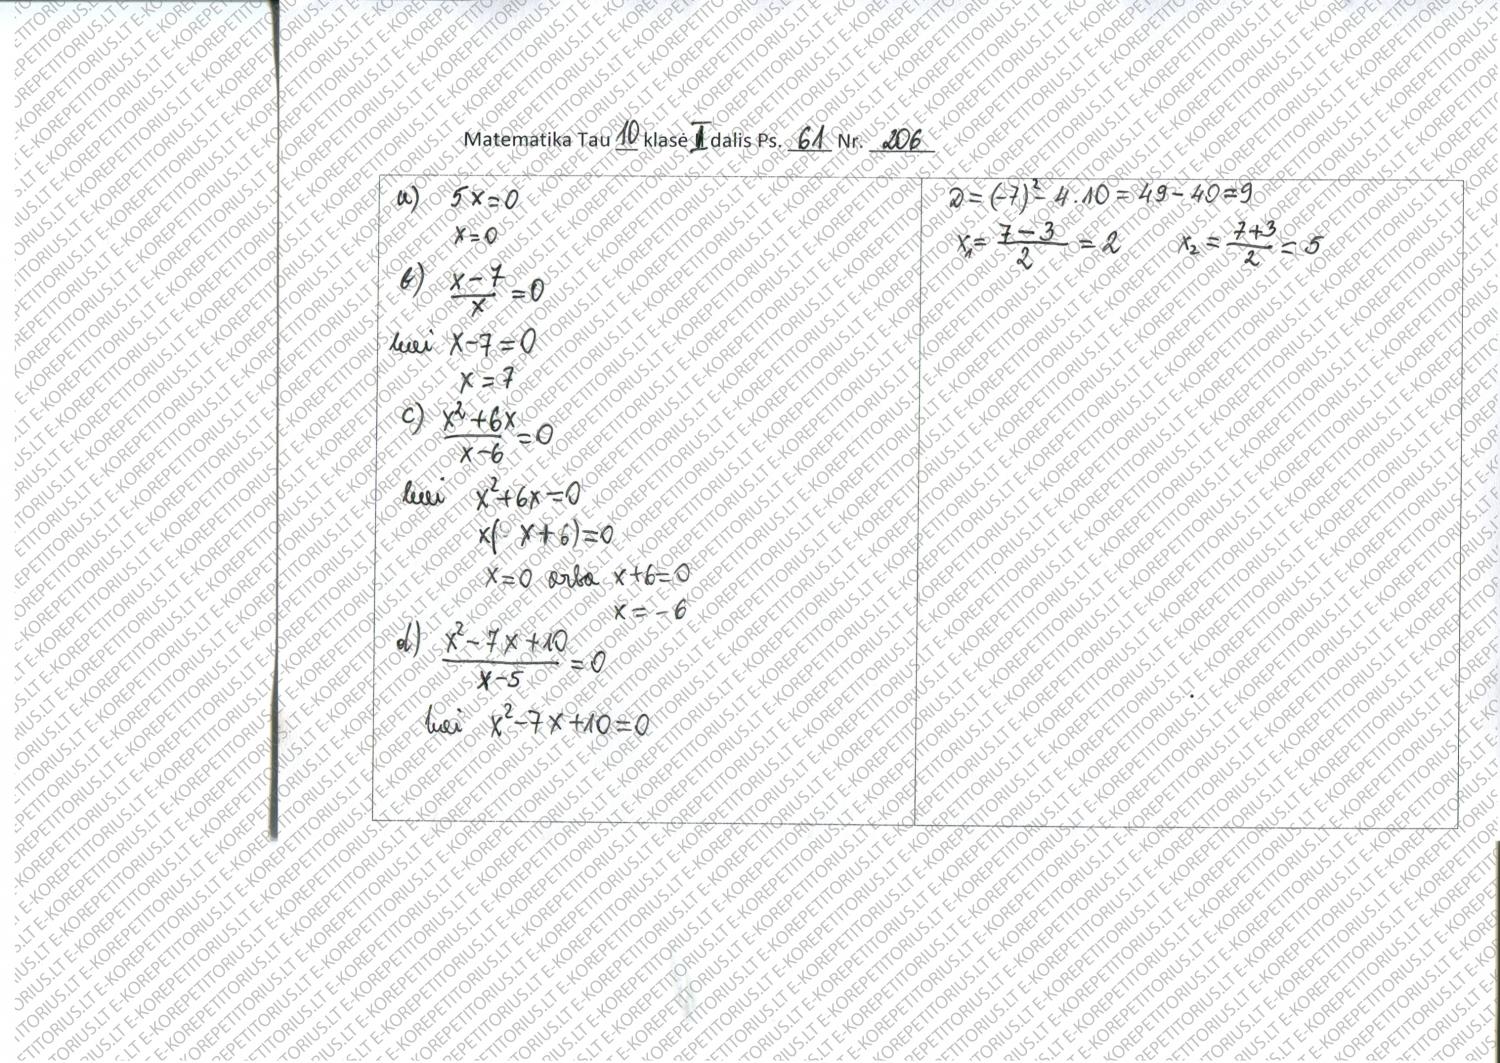 Matematika Tau 10 klasė II dalis Ps. 61 Nr. 206
a) 5x=0
x=0
b) (x-7)/x =0
kai x-7=0
x=7
c) (x²+6x)/(x-6) =0
kai x²+6x=0
x(x+6)=0
x=0 arba x+6=0
x=-6
d) (x²-7x+10)/(x-5) =0
kai x²-7x+10=0
D=(-7)²-4·10=49-40=9
x₁= (7-3)/2 =2 x₂= (7+3)/2 =5
E-KOREPETITORIUS.LT